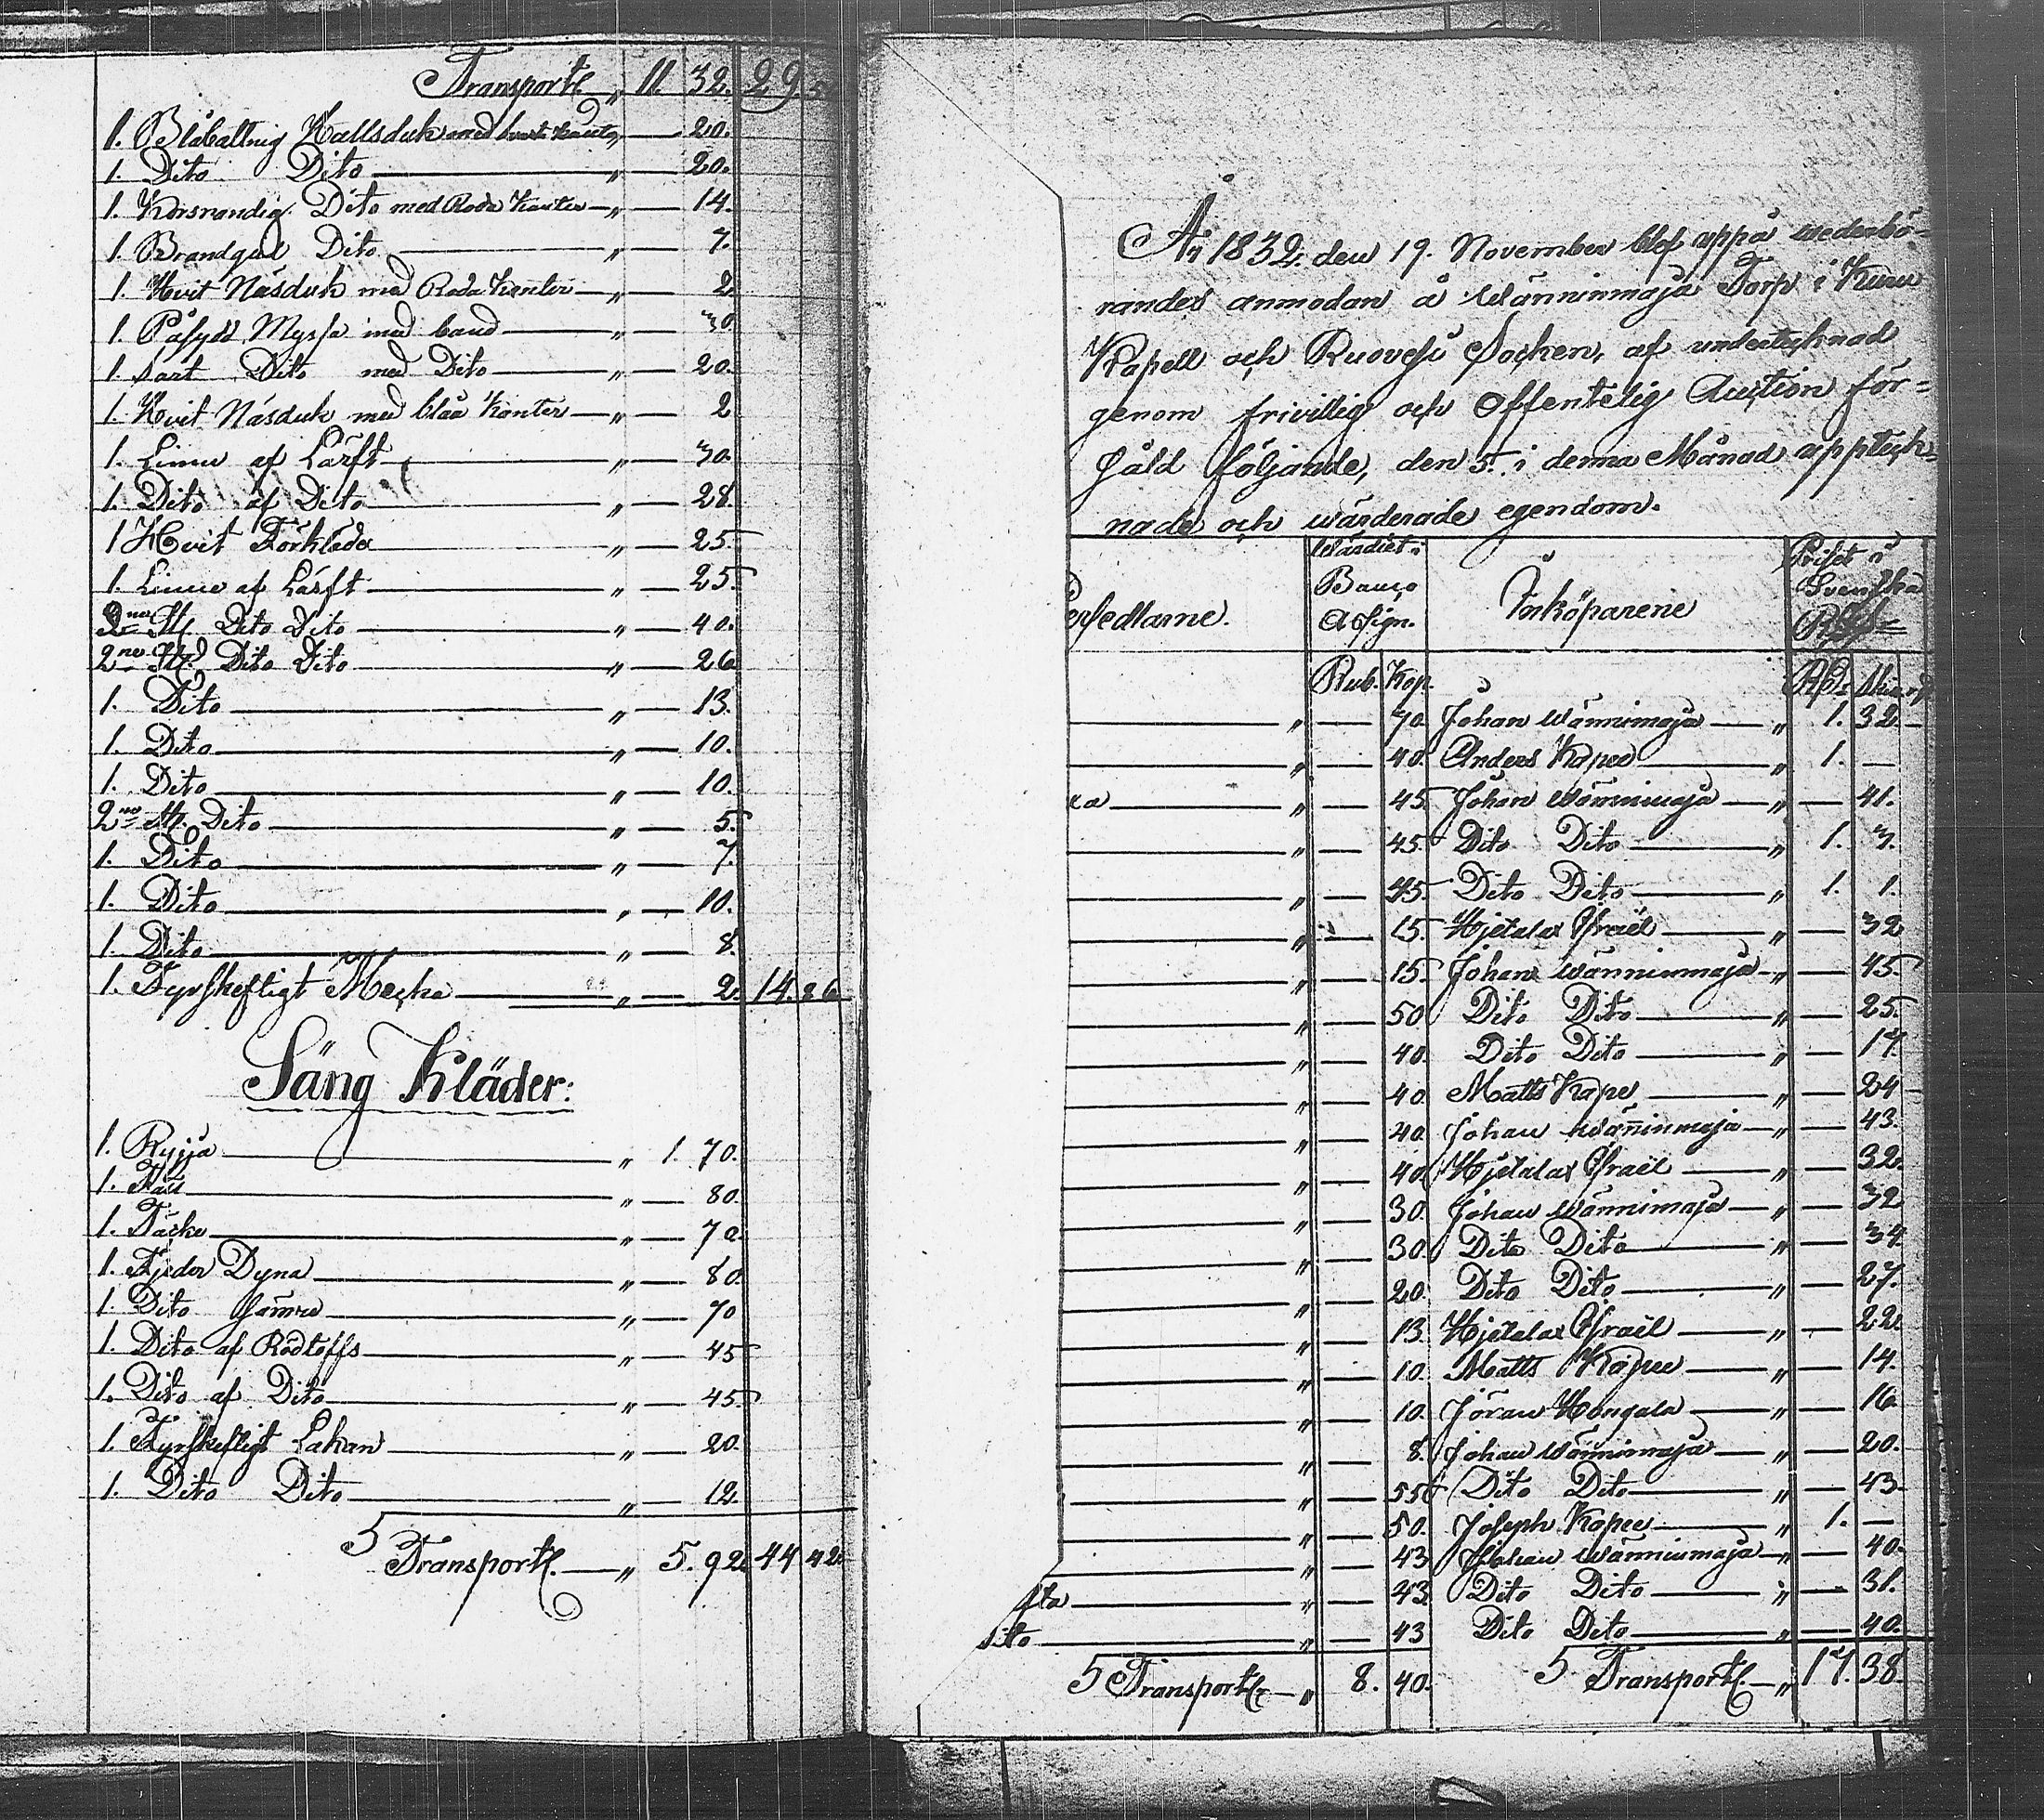 Transport „ 11. 32. 29.
1. Blåbattnig Hallsduk med hvit kanter „ — 20.
1. Dito Dito — „ — 20.
1. Korsrandig Dito med Röda Kanter — „ — 14.
1. Brandgul Dito — „ — 7.
1. Hvit Näsduk med Röda Kanter — „ — 2.
1. Påsydd Myssa med band — „ — 30.
1. Sart Dito med Dito — „ — 20.
1. Hvit Näsduk med blåa Kanter — „ — 2
1. Linne af Lärft — „ — 30.
1. Dito af Dito — „ — 28.
1 Hvit Förkläde — „ — 25.
1. Linne af Lärft — „ — 25.
2ne St. Dito Dito — „ — 40.
2ne St. Dito Dito — „ — 26
1. Dito — „ — 13.
1. Dito — „ — 10.
1. Dito — „ — 10.
2ne St. Dito — „ — 5.
1. Dito — „ — 7.
1. Dito — „ — 10.
1. Dito — „ — 8.
1. Fyrskeftigt Mecka — „ — 2. 14. 26
Säng Kläder:
1. Ryija — „ 1. 70.
1. Fäll — „ — 80.
1. Täcke — „ — 70.
1. Fjeder Dyna — „ — 80.
1. Dito sämre — „ — 70
1. Dito af Rödtoffs — „ — 45
1. Dito af Dito — „ — 45.
1. Fyrskeftigt Lakan — „ — 20.
1. Dito Dito — „ — 12.
5 Transport. — „ 5. 92. 44 42.
År 1832. den 19. November blef uppå wederbö-
randes anmodan å Wänninmaja Torp i Kuru
Kapell och Ruovesi Socken, af undertecknad
genom frivillig och Offentelig Auction för-
såld följande, den 5. i denna Månad uppteck-
nade och wärderade egendom.
Persedlarne. Wärdiet i Banco Assign. Inköparene Priset i Svenska
Rub. Kop. Rd. Skill.
— „ — 70. Johan Wänninmaja — „ 1. 32
— „ — 40. Anders Kapee — „ 1. —
ka — „ — 45. Johan Wänninmaja — „ — 41.
— „ — 45. Dito Dito — „ 1. 3.
— „ — 45 Dito Dito — „ 1. 1.
— „ — 15. Hjetalax Israël — „ — 32
— „ — 15. Johan Wänninmaja — „ — 45.
— „ — 50 Dito Dito — „ — 25.
— „ — 40. Dito Dito — „ — 17.
— „ — 40. Matts Kape — „ — 24
— „ — 40. Johan Wänninmaja — „ — 43.
— „ — 40. Hjetalax Israël — „ — 32.
— „ — 30. Johan Wänninmaja — „ — 32
— „ — 30. Dito Dito — „ — 34.
— „ — 20. Dito Dito — „ — 27.
— „ — 13. Hjetalax Israël — „ — 22.
— „ — 10. Matts Kapee — „ — 14.
— „ — 10. Jöran Hongala — „ — 16
— „ — 8. Johan Wänninmaja — „ — 20.
— „ — 55. Dito Dito — „ — 43
— „ — 50. Joseph Kapee — „ 1. —
— „ — 43 Johan Wänninmaja — „ — 40.
fta — „ — 43. Dito Dito — „ — 31.
Dito — „ — 43 Dito Dito — „ — 40.
5 Transport — „ 8. 40. 5 Transport. — „ 17. 38.